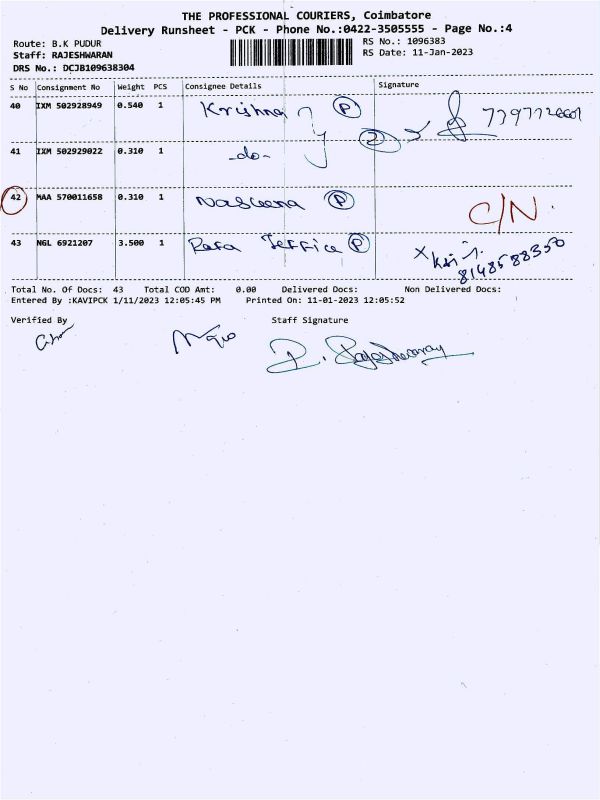 THE PROFESSIONAL COURIERS, Coimbatore
Delivery Runsheet - PCK - Phone No.:0422-3505555 - Page No.:4
Route: B.K PUDUR
RS No.: 1096383
Staff: RAJESHWARAN
RS Date: 11-Jan-2023
DRS No.: DCJB109638304
S No Consignment No Weight PCS Consignee Details Signature
40 IXM 502928949 0.540 1 Krishna P
2
41 IXM 502929022 0.310 1 -do-
42 MAA 570011658 0.310 1 Naseema P C/N.
43 NGL 6921207 3.500 1 P
8148588350
Total No. Of Docs: 43 Total COD Amt: 0.00 Delivered Docs: Non Delivered Docs:
Entered By :KAVIPCK 1/11/2023 12:05:45 PM Printed On: 11-01-2023 12:05:52
Verified By Staff Signature
R. Rajeshwaran